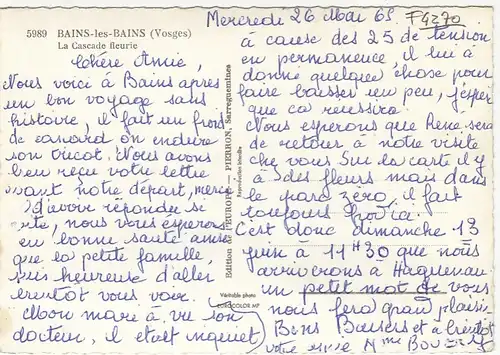 5989 BAINS-les-BAINS (Vosges)
La Cascade fleurie
Mercredi 26 Mai 65
F4270
Chère Annie,
Nous voici à Bains après
un bon voyage sans
histoire, il fait un froid
de canard on endure
son tricot. Nous avons
bien reçu votre lettre
avant notre départ, merci
d'avoir répondu si
vite, nous vous espérons
en bonne santé ainsi
que la petite famille,
suis heureuse d'aller
bientôt vous voir.
Mon mari à vu son
docteur, il était inquiet
à cause des 25 de tension
en permanence, il lui à
donné quelque chose pour
faire baisser un peu, j'espère
que ca reussira.
Nous esperons que René sera
de retour à notre visite
chez vous. Sur la carte il y
à des fleurs mais dans
le parc zéro, il fait
toujours froid.
C'est donc dimanche 13
juin à 11H30 que nous
arriverons à Haguenau
un petit mot de vous
nous fera grand plaisir
Bons Baisers et à bientôt
votre amie Mme
Edition de l'EUROPE — PIERRON, Sarreguemines
Reproduction interdite
Véritable photo